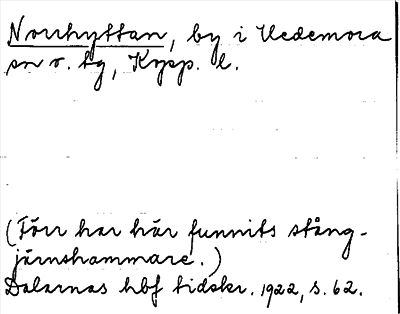 Norrhyttan, by i Hedemora
sn o. tg, Kopp. l.
(Förr har här funnits stång-
järnshammare.)
Dalarnas hbf tidskr. 1922, s. 62.